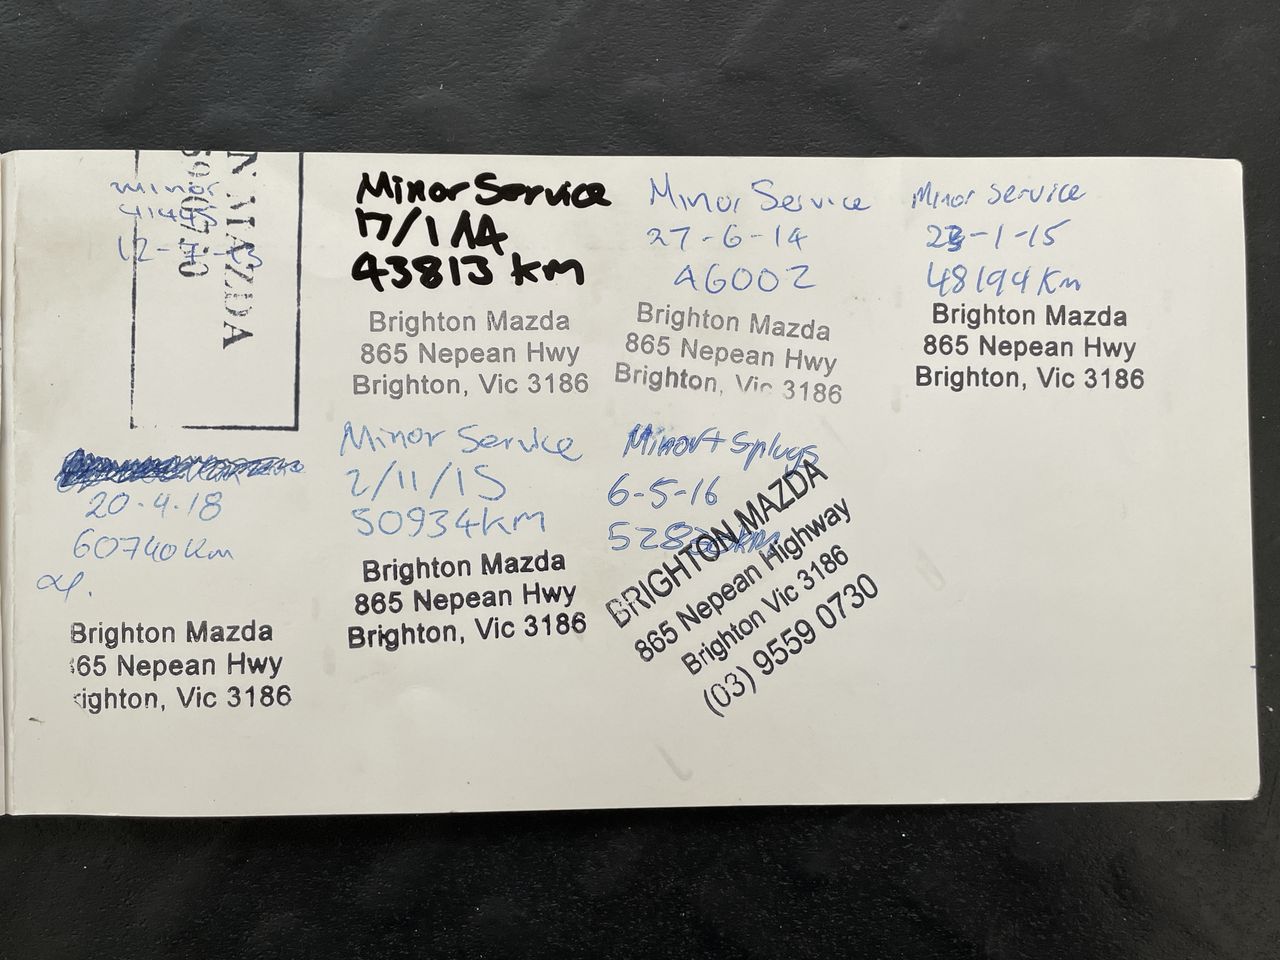 N MAZDA
minor
12-7-13
Minor Service
17/1/14
43813 km
Brighton Mazda
865 Nepean Hwy
Brighton, Vic 3186
Minor Service
27-6-14
46002
Brighton Mazda
865 Nepean Hwy
Brighton, Vic 3186
Minor Service
23-1-15
48194 Km
Brighton Mazda
865 Nepean Hwy
Brighton, Vic 3186
20.4.18
60740 km
Brighton Mazda
65 Nepean Hwy
ighton, Vic 3186
Minor Service
2/11/15
50934km
Brighton Mazda
865 Nepean Hwy
Brighton, Vic 3186
Minor + Splugs
6-5-16
BRIGHTON MAZDA
865 Nepean Highway
Brighton Vic 3186
(03) 9559 0730